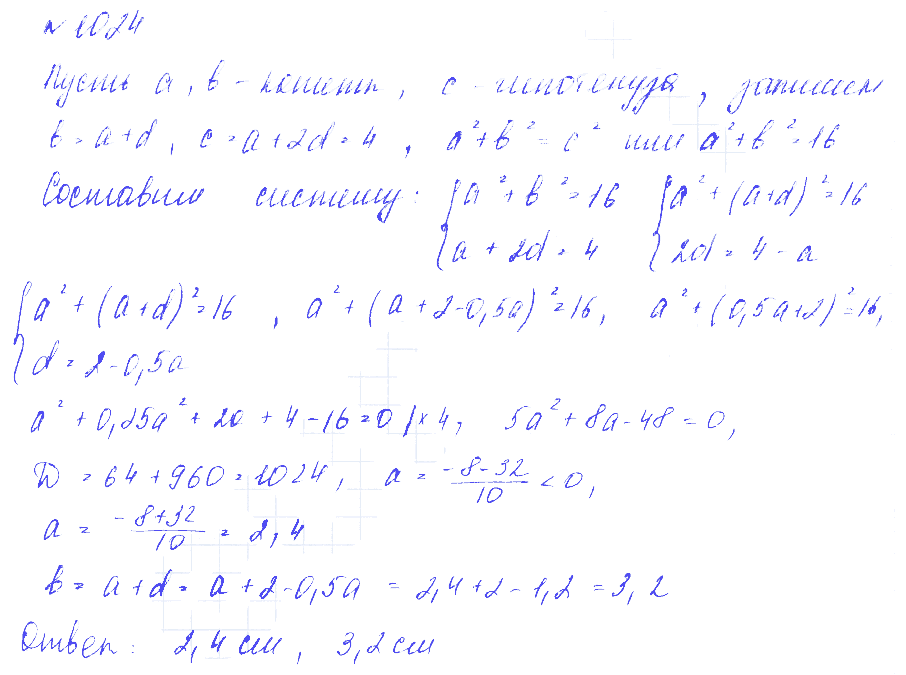 № 1024
Пусть a, b - катеты, c - гипотенуза, запишем
b = a+d, c = a+2d = 4, a² + b² = c² или a² + b² = 16
Составим систему: { a² + b² = 16 { a² + (a+d)² = 16
a + 2d = 4 2d = 4 - a
{ a² + (a+d)² = 16, a² + (a + 2 - 0,5a)² = 16, a² + (0,5a+2)² = 16,
d = 2 - 0,5a
a² + 0,25a² + 2a + 4 - 16 = 0 | × 4, 5a² + 8a - 48 = 0,
D = 64 + 960 = 1024, a = (-8-32)/10 < 0,
a = (-8+32)/10 = 2,4
b = a+d = a + 2 - 0,5a = 2,4 + 2 - 1,2 = 3,2
Ответ: 2,4 см, 3,2 см